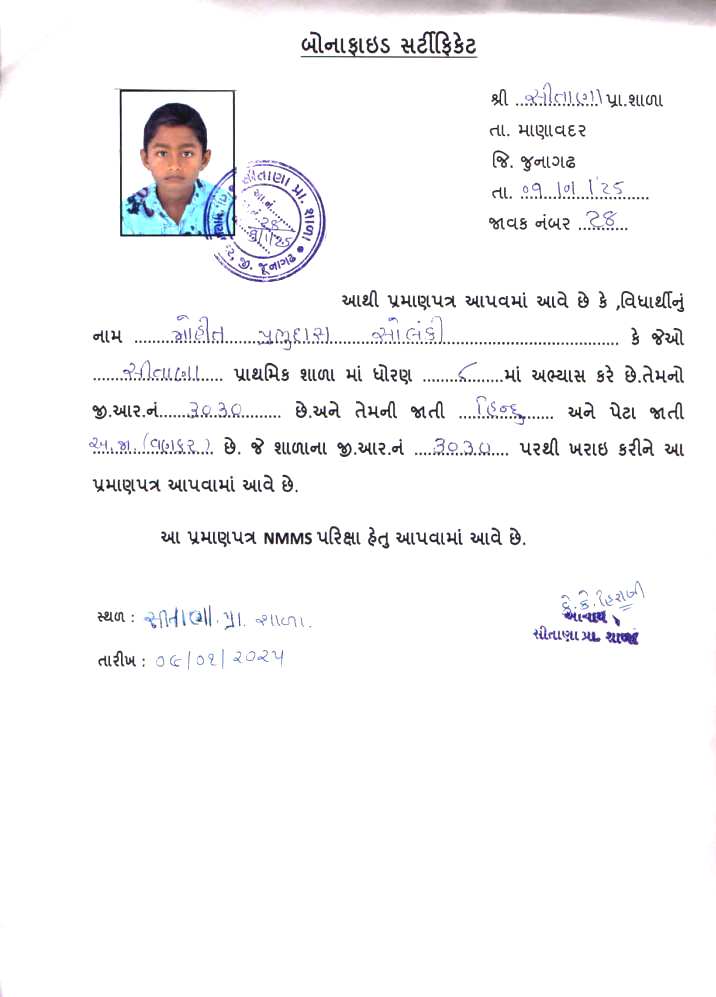 બોનાફાઇડ સર્ટીફિકેટ
શ્રી ..સીતાણા પ્રા.શાળા
તા. માણાવદર
જિ. જુનાગઢ
તા. ૦૧.../૦૧../'૨૫......
જાવક નંબર ..૨૪......
સીતાણા પ્રા. શાળા
જી. જૂનાગઢ
આથી પ્રમાણપત્ર આપવમાં આવે છે કે ,વિધાર્થીનું
નામ ......મોહીત......પ્રભુદાસ......સોલંકી.............................. કે જેઓ
......સીતાણા.... પ્રાથમિક શાળા માં ધોરણ ......૮......માં અભ્યાસ કરે છે.તેમનો
જી.આર.નં.....૩૦૩૦........ છે.અને તેમની જાતી ...હિન્દુ..... અને પેટા જાતી
અ.જા.(વણકર.) છે. જે શાળાના જી.આર.નં ...૩૦૩૦.... પરથી ખરાઇ કરીને આ
પ્રમાણપત્ર આપવામાં આવે છે.
આ પ્રમાણપત્ર NMMS પરિક્ષા હેતુ આપવામાં આવે છે.
સ્થળ : સીતાણા. પ્રા. શાળા.
આચાર્ય
સીતાણા પ્રા. શાળા
તારીખ : ૦૯/૦૧/૨૦૨૫